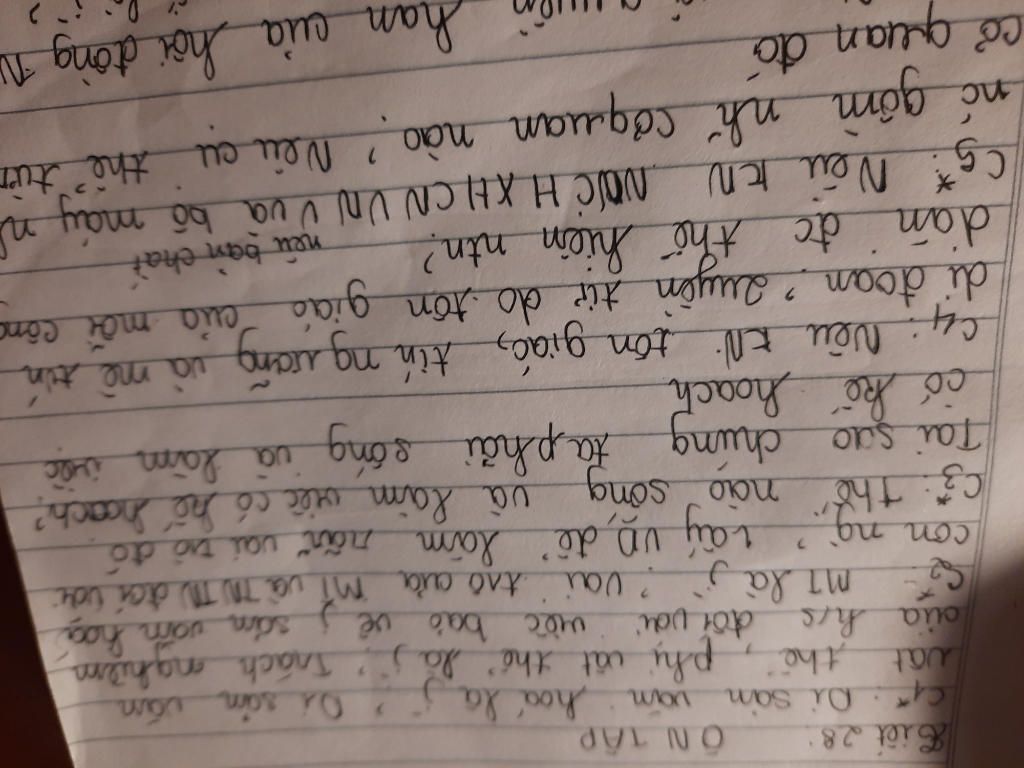 Tiết 28: ÔN TẬP
C1*: Di sản văn hoá là j? Di sản văn
vật thể, phi vật thể là j? Trách nghiêm
của h/s đối với việc bảo vệ j sản văn hoá
C2*: MT là j? Vai trò của MT và TNTN đối với
con ng? Lấy VD để làm vai trò đó
C3*: Thế nào sống và làm việc có kế hoạch?
Tại sao chúng ta phải sống và làm việc
có kế hoạch
C4: Nêu KN tôn giáo, tín ngưỡng và mê tín
dị đoan? Quyền tự do tôn giáo của mỗi công
dân đc thể hiện ntn?
nêu bản chất
C5*: Nêu KN NNCHXHCNVN và bộ máy
nó gồm nh~ cơ quan nào? Nêu cụ thể
cơ quan đó
hạn của hội đồng N